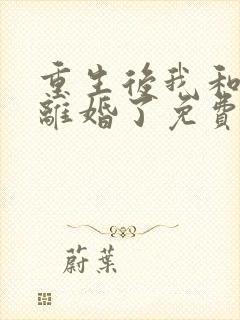 重生後我和
離婚了免費
蔚葉